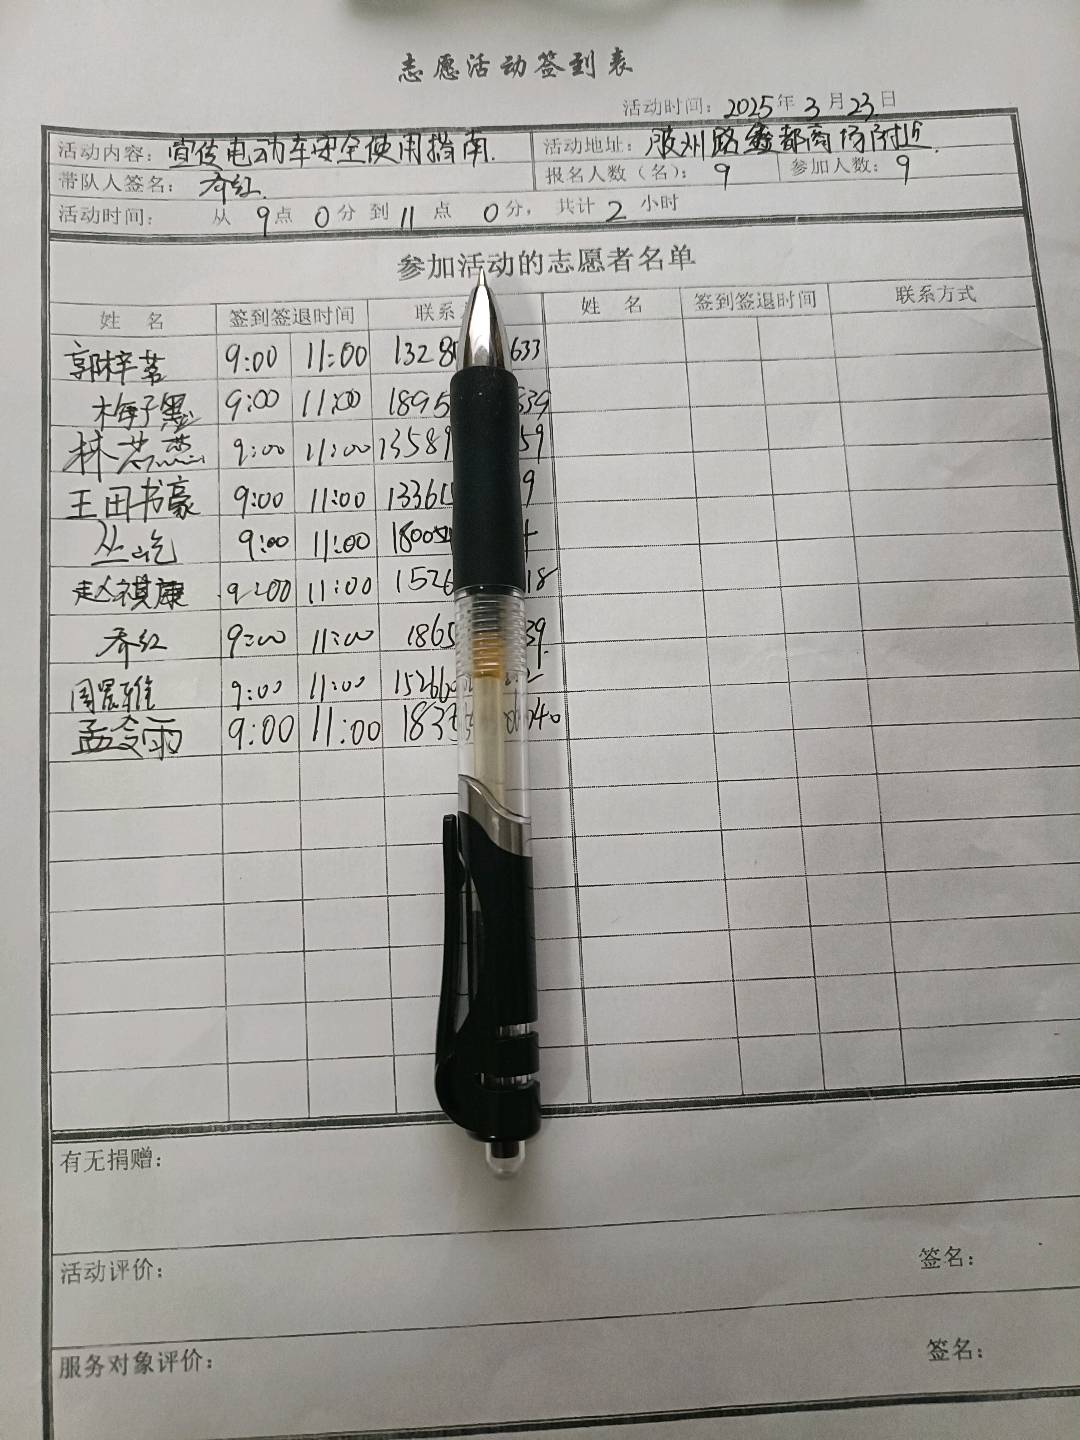 志愿活动签到表
活动时间: 2025年3月23日
活动内容: 宣传电动车安全使用指南. 活动地址: 胶州路鑫都商场附近.
带队人签名: 乔红. 报名人数（名）: 9 参加人数: 9
活动时间: 从 9点 0分到 11点 0分, 共计 2 小时
参加活动的志愿者名单
姓 名 签到签退时间 联系 姓 名 签到签退时间 联系方式
郭梓茗 9:00 11:00 1328 633
梅子墨 9:00 11:00 1895 539
林 9:00 11:00 13589 59
王田书豪 9:00 11:00 1336 9
丛屹 9:00 11:00 1800 4
赵祺康 9:00 11:00 1526 18
乔红 9:00 11:00 1865 39.
周晨雅 9:00 11:00 15266
孟令雨 9:00 11:00 183 040
有无捐赠:
活动评价: 签名:
服务对象评价: 签名: